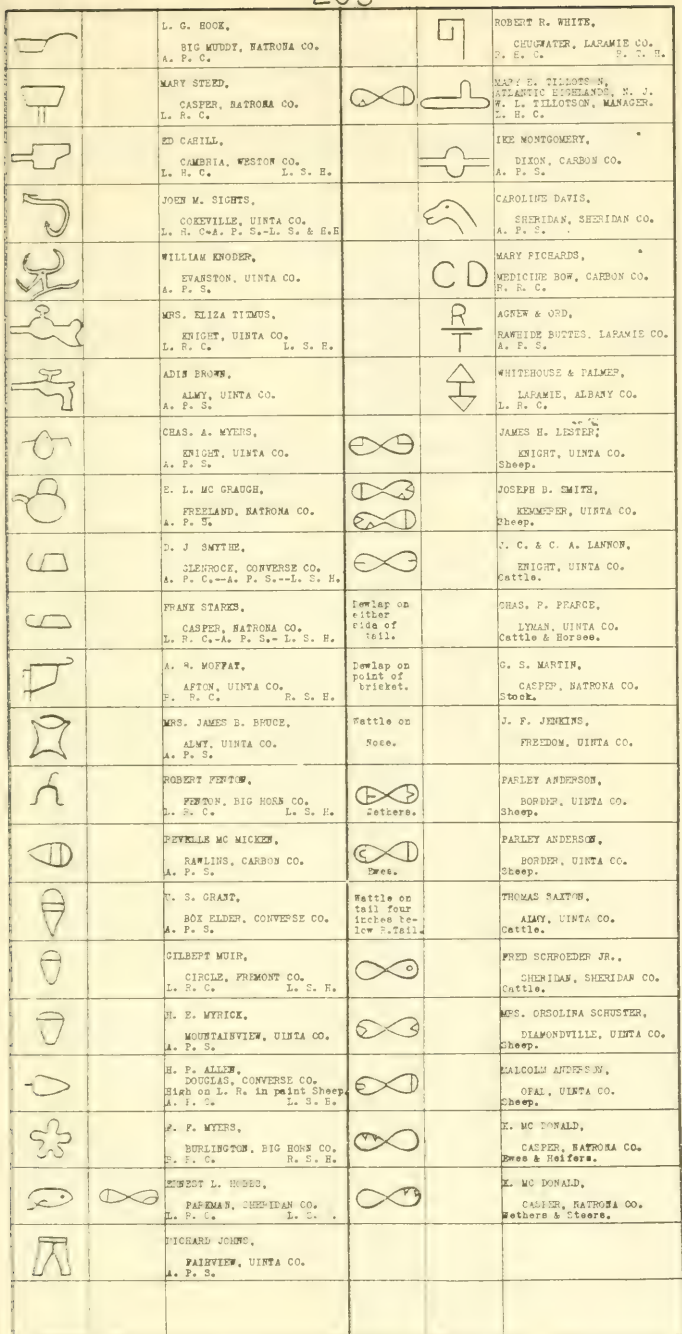 L. G. HOOK,
BIG MUDDY, NATRONA CO.
A. P. C.
MARY STEED,
CASPER, NATRONA CO.
L. R. C.
ED CAHILL,
CAMBRIA, WESTON CO.
L. H. C. L. S. H.
JOHN M. SIGHTS,
COKEVILLE, UINTA CO.
L. H. C-A. P. S.-L. S. & H.H
WILLIAM KNODER,
EVANSTON, UINTA CO.
A. P. S.
MRS. ELIZA TITMUS,
KNIGHT, UINTA CO.
L. R. C. L. S. H.
ADIN BROWN,
ALMY, UINTA CO.
A. P. S.
CHAS. A. MYERS,
KNIGHT, UINTA CO.
A. P. S.
E. L. MC GRAUGH,
FREELAND, NATRONA CO.
A. P. S.
D. J SMYTHE,
GLENROCK, CONVERSE CO.
A. P. C.--A. P. S.--L. S. H.
FRANK STARKS,
CASPER, NATRONA CO.
L. R. C.-A. P. S.- L. S. H.
A. R. MOFFAT,
AFTON, UINTA CO.
R. R. C. R. S. H.
MRS. JAMES B. BRUCE,
ALMY, UINTA CO.
A. P. S.
ROBERT FENTON,
FENTON, BIG HORN CO.
L. R. C. L. S. H.
REVELLE MC MICKEN,
RAWLINS, CARBON CO.
A. P. S.
U. S. GRANT,
BOX ELDER, CONVERSE CO.
A. P. S.
GILBERT MUIR,
CIRCLE, FREMONT CO.
L. R. C. L. S. H.
H. E. MYRICK,
MOUNTAINVIEW, UINTA CO.
A. P. S.
H. P. ALLEN,
DOUGLAS, CONVERSE CO.
High on L. R. in paint Sheep
L. S. H.
F. MYERS,
BURLINGTON, BIG HORN CO.
R. R. C. R. S. H.
ERNEST L.
PARKMAN, SHERIDAN CO.
L. R. C. L. S.
RICHARD JOHNS,
FAIRVIEW, UINTA CO.
A. P. S.
ROBERT R. WHITE,
CHUGWATER, LARAMIE CO.
MARY E. TILLOTSON,
ATLANTIC HIGHLANDS, N. J.
W. L. TILLOTSON, MANAGER.
L. H. C.
IKE MONTGOMERY,
DIXON, CARBON CO.
A. P. S.
CAROLINE DAVIS,
SHERIDAN, SHERIDAN CO.
A. P. S.
C D
MARY RICHARDS,
MEDICINE BOW, CARBON CO.
R. R. C.
R
T
AGNEW & ORD,
RAWHIDE BUTTES, LARAMIE CO.
A. P. S.
WHITEHOUSE & PALMER,
LARAMIE, ALBANY CO.
L. R. C.
JAMES H. LESTER,
KNIGHT, UINTA CO.
Sheep.
JOSEPH D. SMITH,
KEMMERER, UINTA CO.
Sheep.
J. C. & C. A. LANNON,
KNIGHT, UINTA CO.
Cattle.
Dewlap on
either
side of
tail.
CHAS. P. PEARCE,
LYMAN, UINTA CO.
Cattle & Horses.
Dewlap on
point of
brisket.
G. S. MARTIN,
CASPER, NATRONA CO.
Stock.
Wattle on
Nose.
J. F. JENKINS,
FREEDOM, UINTA CO.
Wethers.
PARLEY ANDERSON,
BORDER, UINTA CO.
Sheep.
Ewes.
PARLEY ANDERSON,
BORDER, UINTA CO.
Sheep.
Wattle on
tail four
inches be-
low R.Tail.
THOMAS SAXTON,
ALMY, UINTA CO.
Cattle.
FRED SCHROEDER JR.,
SHERIDAN, SHERIDAN CO.
Cattle.
MRS. ORSOLINA SCHUSTER,
DIAMONDVILLE, UINTA CO.
Sheep.
MALCOLM ANDERSON,
OPAL, UINTA CO.
Sheep.
K. MC DONALD,
CASPER, NATRONA CO.
Ewes & Heifers.
K. MC DONALD,
CASPER, NATRONA CO.
Wethers & Steers.